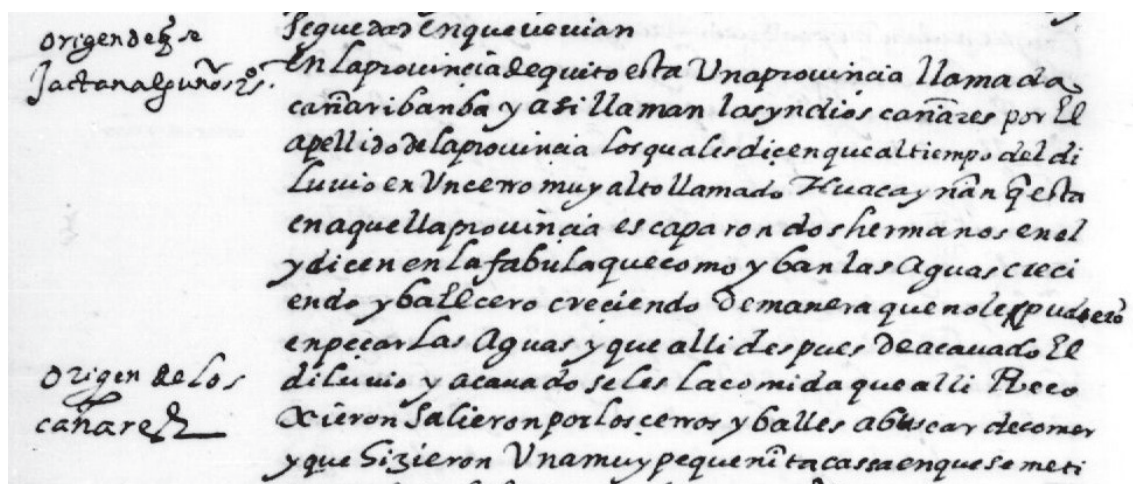 origen de q̃ se
Jactan algunõs
sequedad en que veuian
en la prouincia de quito esta Una prouincia llamada
cañaribanba y asi llaman los yndios cañares por El
apellido de la prouincia los quales dicen que al tiempo del di
luuio en Un cerro muy alto llamado Huacayñan q̃ esta
en aquella prouincia escaparon dos hermanos en el
y dicen en la fabula que como yban las Aguas creci
endo yba El cero creciendo de manera que no les pudierõ
enpecer las Aguas y que alli despues de acauado El
diluuio y acauadoseles la comida que alli Reco
xieron salieron por los cerros y balles a buscar de comer
y que hizieron Una muy pequeñita cassa en que se meti
origen de los
cañares